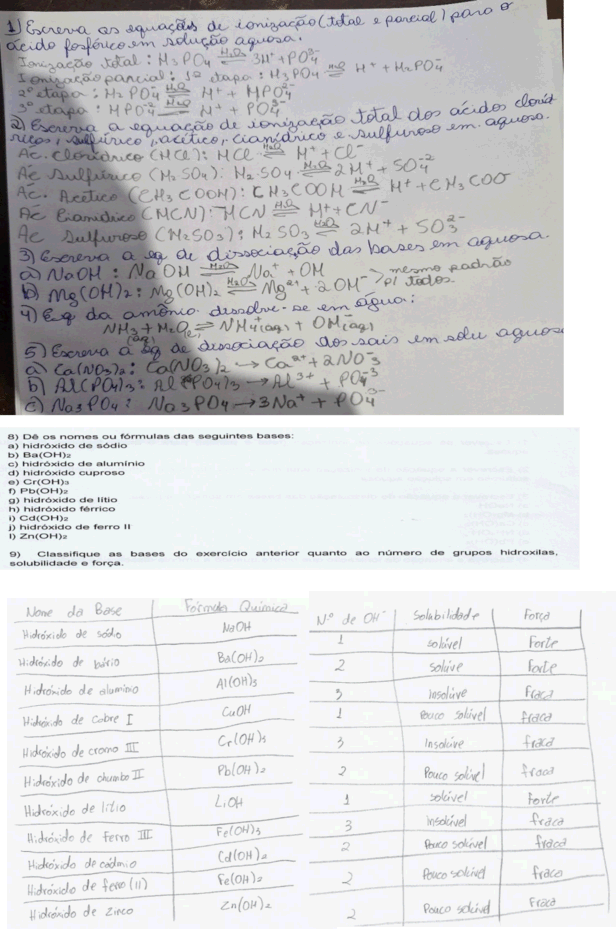 1) Escreva as equações de ionização (total e parcial) para o
ácido fosfórico em solução aquosa.
Ionização total: H₃PO₄ ⇌ H₂O 3H⁺ + PO₄³⁻
Ionização parcial: 1ª etapa: H₃PO₄ ⇌ H₂O H⁺ + H₂PO₄⁻
2ª etapa: H₂PO₄⁻ ⇌ H₂O H⁺ + HPO₄²⁻
3ª etapa: HPO₄⁻² ⇌ H₂O H⁺ + PO₄³⁻
2) Escreva a equação de ionização total dos ácidos cloríd
ricos, sulfúrico, acético, cianídrico e sulfuroso em aquosa.
Ác. Clorídrico (HCl): HCl ⇌ H₂O H⁺ + Cl⁻
Ác Sulfúrico (H₂SO₄): H₂SO₄ ⇌ H₂O 2H⁺ + SO₄⁻²
Ác. Acético (CH₃COOH): CH₃COOH ⇌ H₂O H⁺ + CH₃COO⁻
Ác Cianídrico (HCN): HCN ⇌ H₂O H⁺ + CN⁻
Ac Sulfuroso (H₂SO₃): H₂SO₃ ⇌ H₂O 2H⁺ + SO₃²⁻
3) Escreva a eq de dissociação das bases em aquosa.
a) NaOH: NaOH ⇌ H₂O Na⁺ + OH
b) Mg(OH)₂: Mg(OH)₂ ⇌ H₂O Mg²⁺ + 2OH⁻ > mesmo padrão p/ todos.
4) Eq da amônio dissolve-se em água:
NH₃ (aq) + H₂O ⇌ NH₄⁺(aq) + OH⁻(aq)
5) Escreva a eq de dissociação dos sais em solu aquosa
a) Ca(NO₃)₂: Ca(NO₃)₂ → Ca²⁺ + 2NO₃⁻
b) Al(PO₄)₃: Al(PO₄)₃ → Al³⁺ + PO₄⁻³
c) Na₃PO₄: Na₃PO₄ → 3Na⁺ + PO₄³⁻
8) Dê os nomes ou fórmulas das seguintes bases:
a) hidróxido de sódio
b) Ba(OH)₂
c) hidróxido de alumínio
d) hidróxido cuproso
e) Cr(OH)₃
f) Pb(OH)₂
g) hidróxido de lítio
h) hidróxido férrico
i) Cd(OH)₂
j) hidróxido de ferro II
l) Zn(OH)₂
9) Classifique as bases do exercício anterior quanto ao número de grupos hidroxilas,
solubilidade e força.
Nome da Base Fórmula Química Nº de OH⁻ Solubilidade Força
Hidróxido de sódio NaOH 1 solúvel Forte
Hidróxido de bário Ba(OH)₂ 2 solúve Forte
Hidróxido de alumínio Al(OH)₃ 3 Insolúve Fraca
Hidróxido de Cobre I CuOH 1 Pouco solúvel fraca
Hidróxido de cromo III Cr(OH)₃ 3 Insolúve fraca
Hidróxido de chumbo II Pb(OH)₂ 2 Pouco solúvel fraca
Hidróxido de lítio LiOH 1 solúvel Forte
Hidróxido de ferro III Fe(OH)₃ 3 Insolúvel fraca
Hidróxido de cádmio Cd(OH)₂ 2 Pouco solúvel fraca
Hidróxido de ferro (II) Fe(OH)₂ 2 Pouco solúvel fraca
Hidróxido de Zinco Zn(OH)₂ 2 Pouco solúvel Fraca